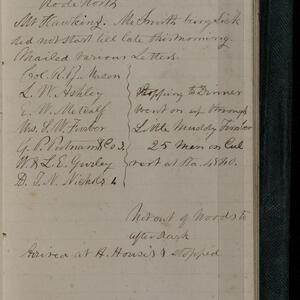 Rode North
Mr Hawkins. Mr Smith being sick
did not start till late this morning.
Mailed various Letters.
Col. R. B. Mason
L. W. Ashley
W. Metcalf
Mrs. S. W.
G. P. Putnam & Co 3
W. & L. E. Gurley
D. T. N. Nichols
Stopping to Dinner
went on up through
Little Muddy Timber
25 men on Cul
vert at No. 4840.
Not out of Woods to
after dark
arrived at H. House & stopped